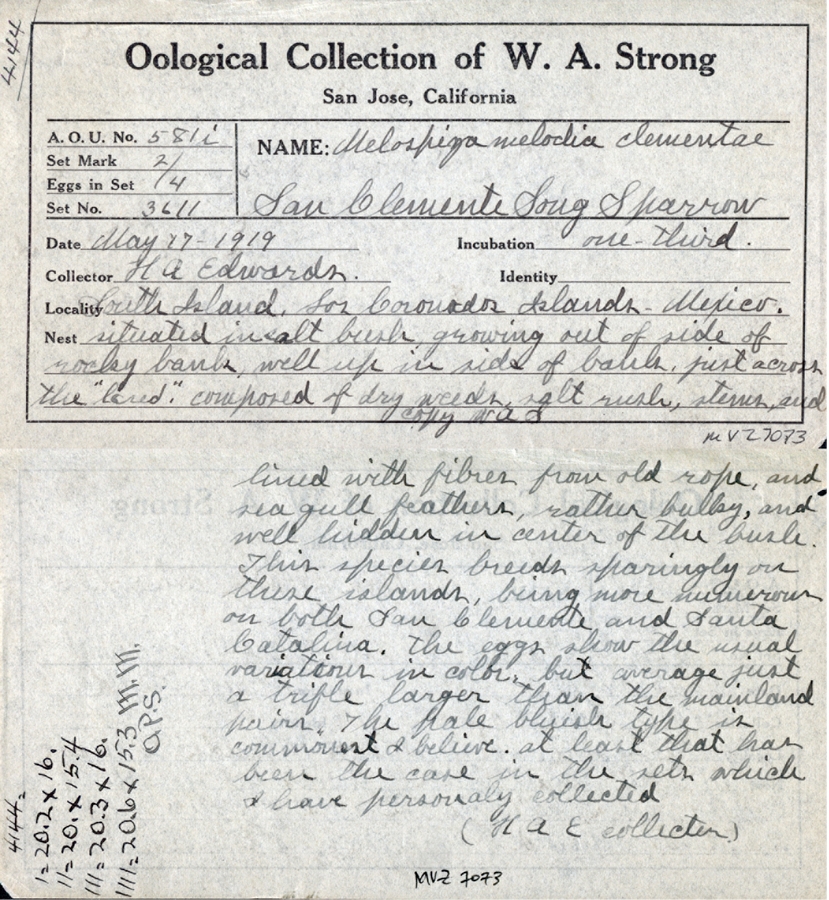 4144
Oological Collection of W. A. Strong
San Jose, California
A. O. U. No. 581i
Set Mark 2/
Eggs in Set /4
Set No. 3611
NAME: Melospiza melodia clementae
San Clemente Song Sparrow
Date May 17-1919
Incubation one-third.
Collector H A Edwards.
Identity
Locality South Island, Los Coronados Islands - Mexico.
Nest situated in salt bush growing out of side of
rocky bank, well up in side of bank, just across
the "bred". composed of dry weeds, salt rush, stems, and
copy WAS
MVZ 7073
lined with fibres from old rope, and
sea gull feathers, rather bulky, and
well hidden in center of the bush.
This species breeds sparingly on
these islands, being more numerous
on both San Clemente and Santa
Catalina. The eggs show the usual
variations in color, but average just
a trifle larger than the mainland
pairs. The pale bluish type is
commonest I believe. at least that has
been the case in the sets which
I have personaly collected
(H A E collector)
4144=
I = 20.2 x 16.
II = 20. x 15.4
III = 20.3 x 16.
IIII = 20.6 x 15.3 M.M.
O.P.S.
MVZ 7073